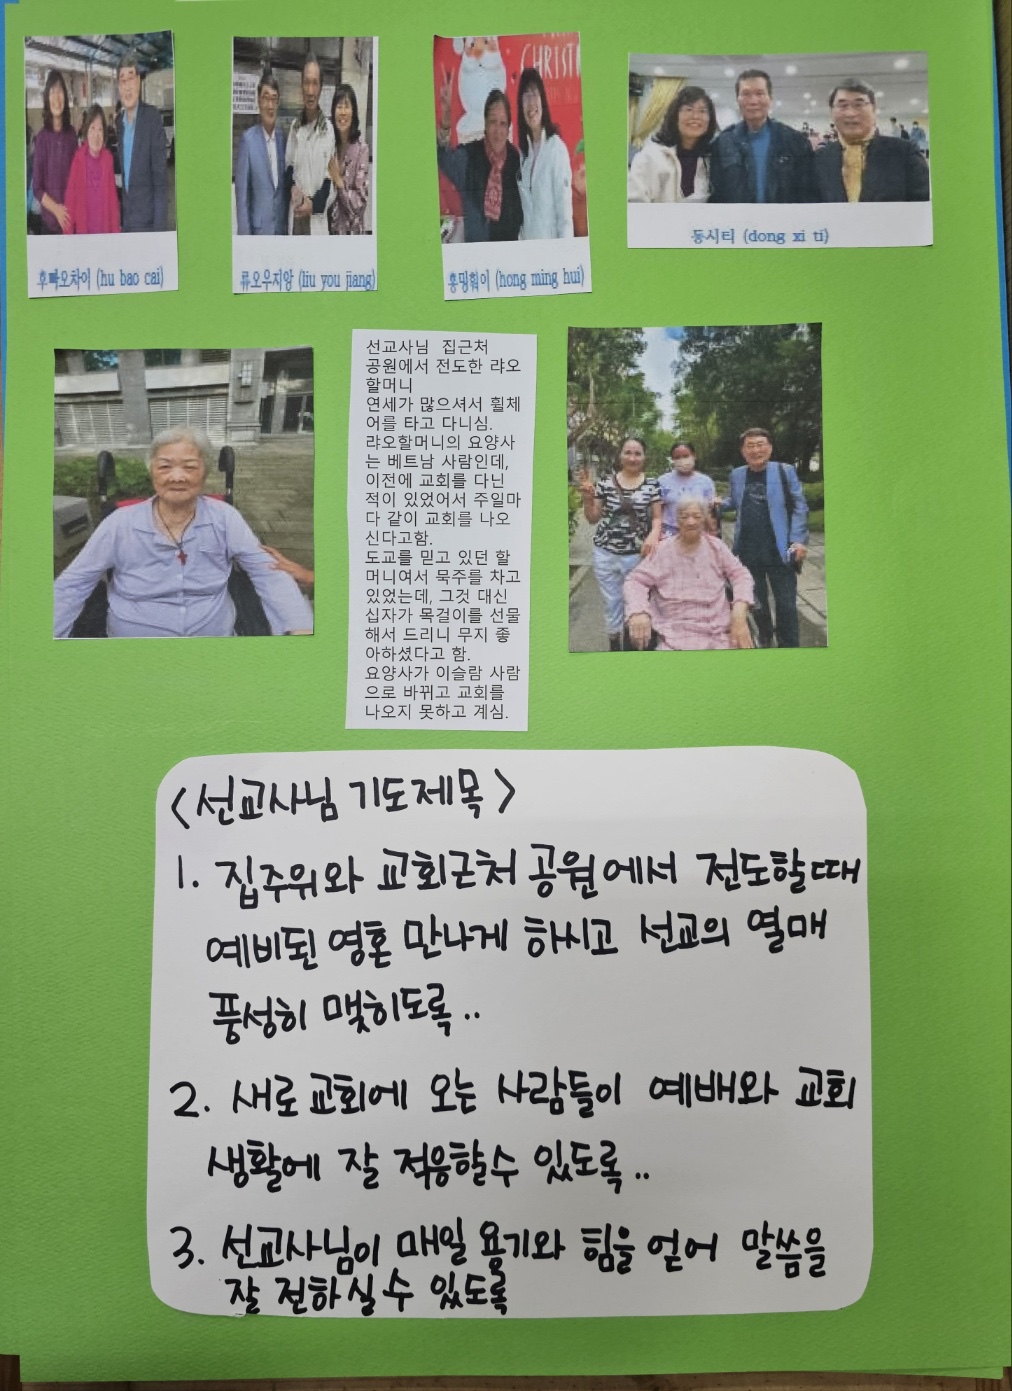 CHRIST
후빠오차이 (hu bao cai)
류오우지앙 (liu you jiang)
홍밍훼이 (hong ming hui)
동시티 (dong xi ti)
선교사님 집근처
공원에서 전도한 랴오
할머니
연세가 많으셔서 휠체
어를 타고 다니심.
랴오할머니의 요양사
는 베트남 사람인데,
이전에 교회를 다닌
적이 있었어서 주일마
다 같이 교회를 나오
신다고함.
도교를 믿고 있던 할
머니여서 묵주를 차고
있었는데, 그것 대신
십자가 목걸이를 선물
해서 드리니 무지 좋
아하셨다고 함.
요양사가 이슬람 사람
으로 바뀌고 교회를
나오지 못하고 계심.
<선교사님 기도제목>
1. 집주위와 교회근처 공원에서 전도할때
예비된 영혼 만나게 하시고 선교의 열매
풍성히 맺히도록..
2. 새로 교회에 오는 사람들이 예배와 교회
생활에 잘 적응할수 있도록..
3. 선교사님이 매일 용기와 힘을 얻어 말씀을
잘 전하실수 있도록